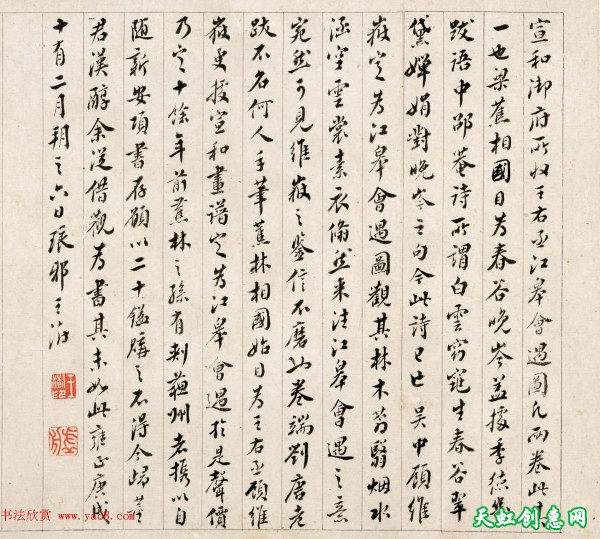 宣和御府所收王右丞江皋會遇圖凡兩卷此其
一也梁蕉相國目為春谷晚岑益據季綠幾
跋語中邵菴詩所謂白雲窈窕生春谷翠
黛嬋娟對晚岑之句今此詩已亡 吳中顧維
嶽定為江皋會遇圖觀其林木蓊翳烟水
涵空雲裳素衣翛然來往江皋會遇之意
宛然可見維嶽之鑒信不磨以卷端劉唐老
跋不名何人手筆蕉林相國始目為王右丞顧維
嶽更援宣和畫譜定為江皋會遇於是聲價
乃定十餘年前蕉林之孫有刺蘇州者攜以自
隨新安項書存願以二十鎰購之不得今歸
君漢醇余從借觀為書其末如此雍正庚戌
十有二月朔之六日琅邪王澍
书法欣赏 www.yac8.com
天虹创意网